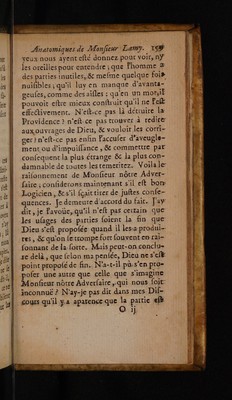 Anatomiques de Monsieur Lamy.
yeux nous ayent esté donnez pour voir, ny
les oreilles pour entendre; que l'homme a
des parties inutiles, & mesme quelque fois
nuisibles; qu'il luy en manque d'avanta-
geuses, comme des aisles: qu'en un mot, il
pouvoit estre mieux construit qu'il ne l'est
effectivement. N'est-ce pas là détruire la
Providence? n'est-ce pas trouver à redire
aux ouvrages de Dieu, & vouloir les corri-
ger? n'est-ce pas enfin l'accuser d'aveugle-
ment ou d'impuissance, & commettre par
consequent la plus étrange & la plus con-
damnable de toutes les temeritez. Voila le
raisonnement de Monsieur nôtre Adver-
saire; considerons maintenant s'il est bon
Logicien, & s'il sçait tirer de justes conse-
quences. Je demeure d'accord du fait. J'ay
dit, je l'avoüe, qu'il n'est pas certain que
les usages des parties soient la fin que
Dieu s'est proposée quand il les a produi-
res, & qu'on se trompe fort souvent en rai-
sonnant de la sorte. Mais peut-on conclu-
re delà, que selon ma pensée, Dieu ne s'est
point proposé de fin. N'a-t-il pû s'en pro-
poser une autre que celle que s'imagine
Monsieur nôtre Adversaire, qui nous soit
inconnuë? N'ay-je pas dit dans mes Dis-
cours qu'il y a aparence que la partie est
O ij